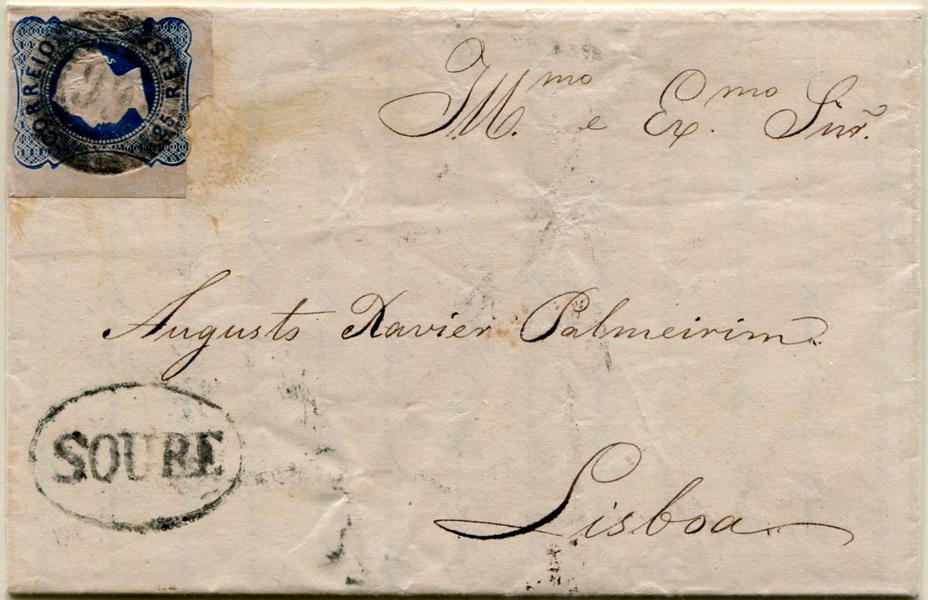 CORREIO
25 REIS
Illmo e Exmo Snr.
Augusto Xavier Palmeirim
SOURE
Lisboa